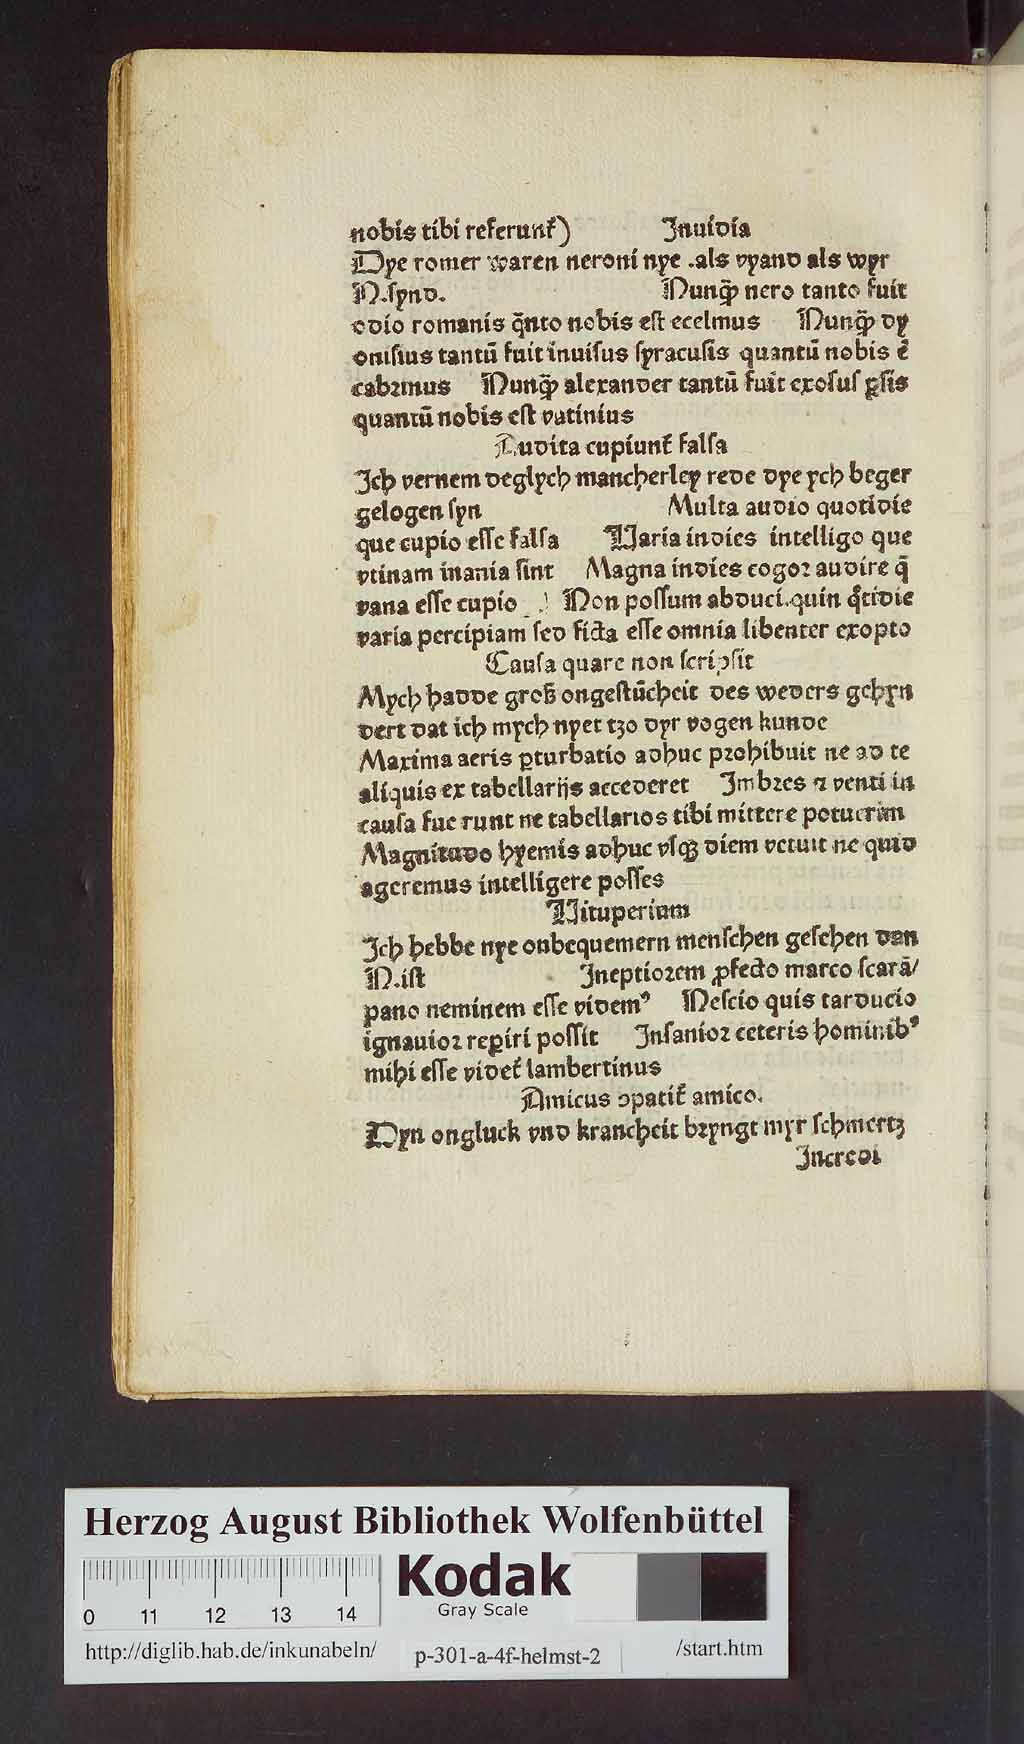 nobis tibi referunt᷑) Inuidia
Dye romer waren neroni nye .als vyand als wyr
N.synd. Nunꝙ̃ nero tanto fuit
odio romanis q̃nto nobis est ecelmus Nunꝙ̃ dy
onisius tantū fuit inuisus syracusis quantū nobis ē
cabrinus Nunꝙ̃ alexander tantū fuit exosus ꝑsis
quantū nobis est vatinius
Audita cupiunt᷑ falsa
Ich vernem deglych mancherley rede dye ych beger
gelogen syn Multa audio quotidie
que cupio esse falsa Varia indies intelligo que
vtinam inania sint Magna indies cogor audire q̄
vana esse cupio Non possum abduci.quin q̊tidie
varia percipiam sed ficta esse omnia libenter exopto
Causa quare non scripsit
Mych hadde groß ongestūcheit des weders gehyn
dert dat ich mych nyet tzo dyr vogen kunde
Maxima aeris ꝑturbatio adhuc prohibuit ne ad te
aliquis ex tabellarijs accederet Imbres ⁊ venti in
causa fue runt ne tabellarios tibi mittere potuerim
Magnitudo hyemis adhuc vsqꝫ diem vetuit ne quid
ageremus intelligere posses
Vituperium
Ich hebbe nye onbequemern menschen gesehen dan
N.ist Ineptiorem ꝓfecto marco scarā/
pano neminem esse videmꝰ Nescio quis tarducio
ignauior reꝑiri possit Insanior ceteris hominibꝰ
mihi esse videt᷑ lambertinus
Amicus ↄpatit᷑ amico.
Dyn ongluck vnd krancheit bryngt myr schmertz
Incredi
Herzog August Bibliothek Wolfenbüttel
0 11 12 13 14
Kodak
Gray Scale
http://diglib.hab.de/inkunabeln/ p-301-a-4f-helmst-2 /start.htm